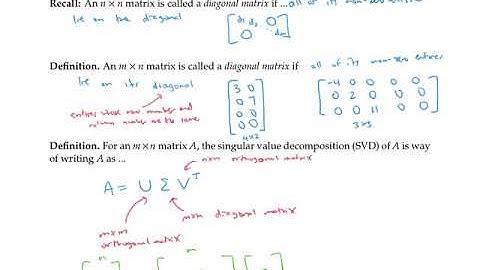 Recall: An n × n matrix is called a diagonal matrix if ... all of its non-zero entries
lie on the diagonal
d₁ d₂ 0
0 dₙ
Definition. An m × n matrix is called a diagonal matrix if all of its non-zero entries
lie on its diagonal
3 0
0 7
0 0
0 0
4×2
-4 0 0 0 0
0 2 0 0 0
0 0 11 0 0
3×5
entries whose row number and
column number are the same
Definition. For an m × n matrix A, the singular value decomposition (SVD) of A is way
of writing A as ...
n×n orthogonal matrix
A = U Σ Vᵀ
m×n diagonal matrix
m×m
orthogonal matrix
n
n